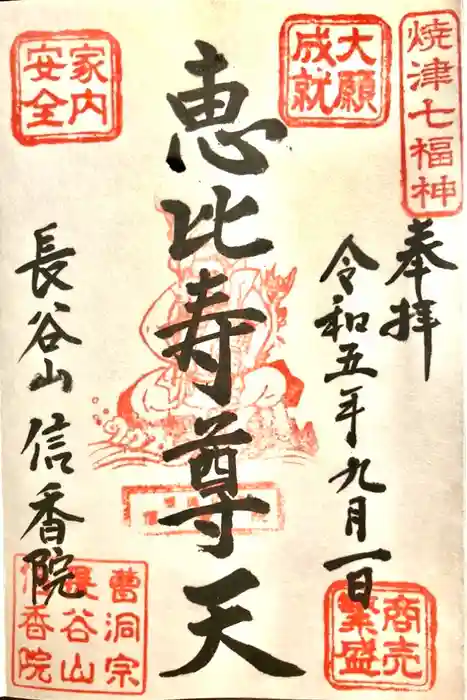 焼津七福神
奉拝
大願成就
令和五年九月一日
商売繁盛
恵比寿尊天
家内安全
長谷山 信香院
曹洞宗
長谷山
信香院